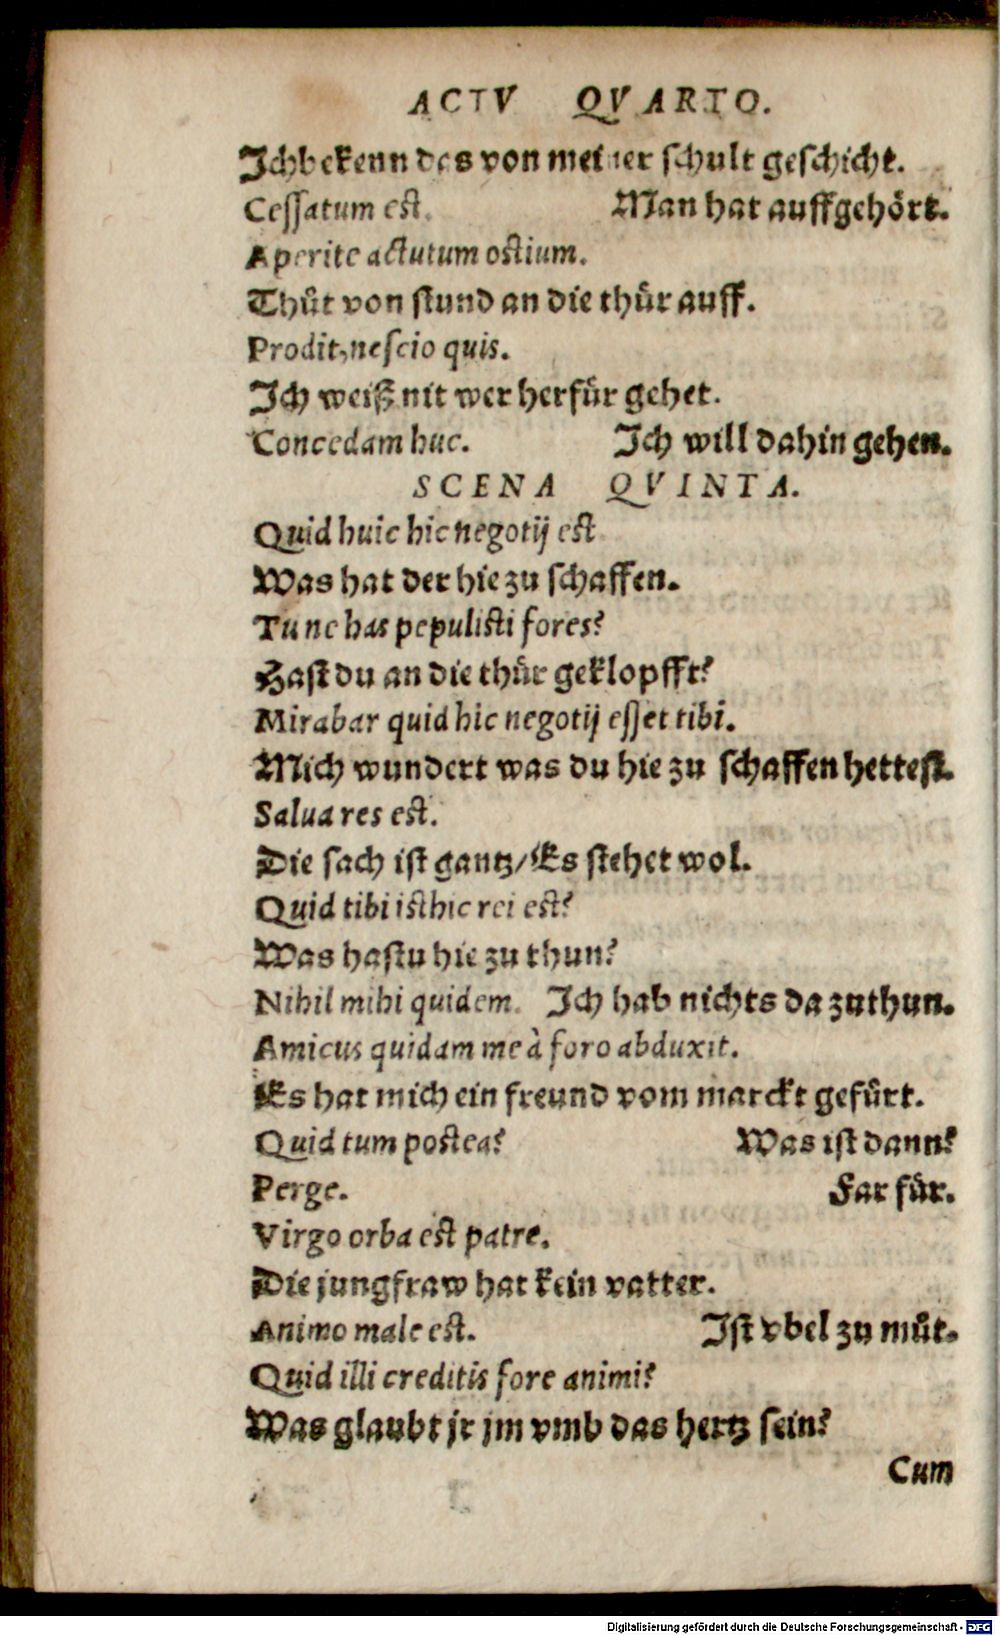 ACTV QVARTO.
Ich bekenn das von meiner schult geschicht.
Cessatum est. Man hat auffgehört.
Aperite actutum ostium.
Thůt von stund an die thür auff.
Prodit, nescio quis.
Ich weiß nit wer herfür gehet.
Concedam huc. Ich will dahin gehen.
SCENA QVINTA.
Quid huic hic negotij est
Was hat der hie zu schaffen.
Tu ne has pepulisti fores?
Hast du an die thür geklopfft?
Mirabar quid hic negotij esset tibi.
Mich wundert was du hie zu schaffen hettest.
Salua res est.
Die sach ist gantz/ Es stehet wol.
Quid tibi isthic rei est?
Was hastu hie zu thun?
Nihil mihi quidem. Ich hab nichts da zuthun.
Amicus quidam me à foro abduxit.
Es hat mich ein freund vom marckt gefürt.
Quid tum postea? Was ist dann?
Perge. Far für.
Virgo orba est patre.
Die jungfraw hat kein vatter.
Animo male est. Ist vbel zu můt.
Quid illi creditis fore animi?
Was glaubt jr jm vmb das hertz sein?
Cum
Digitalisierung gefördert durch die Deutsche Forschungsgemeinschaft - DFG